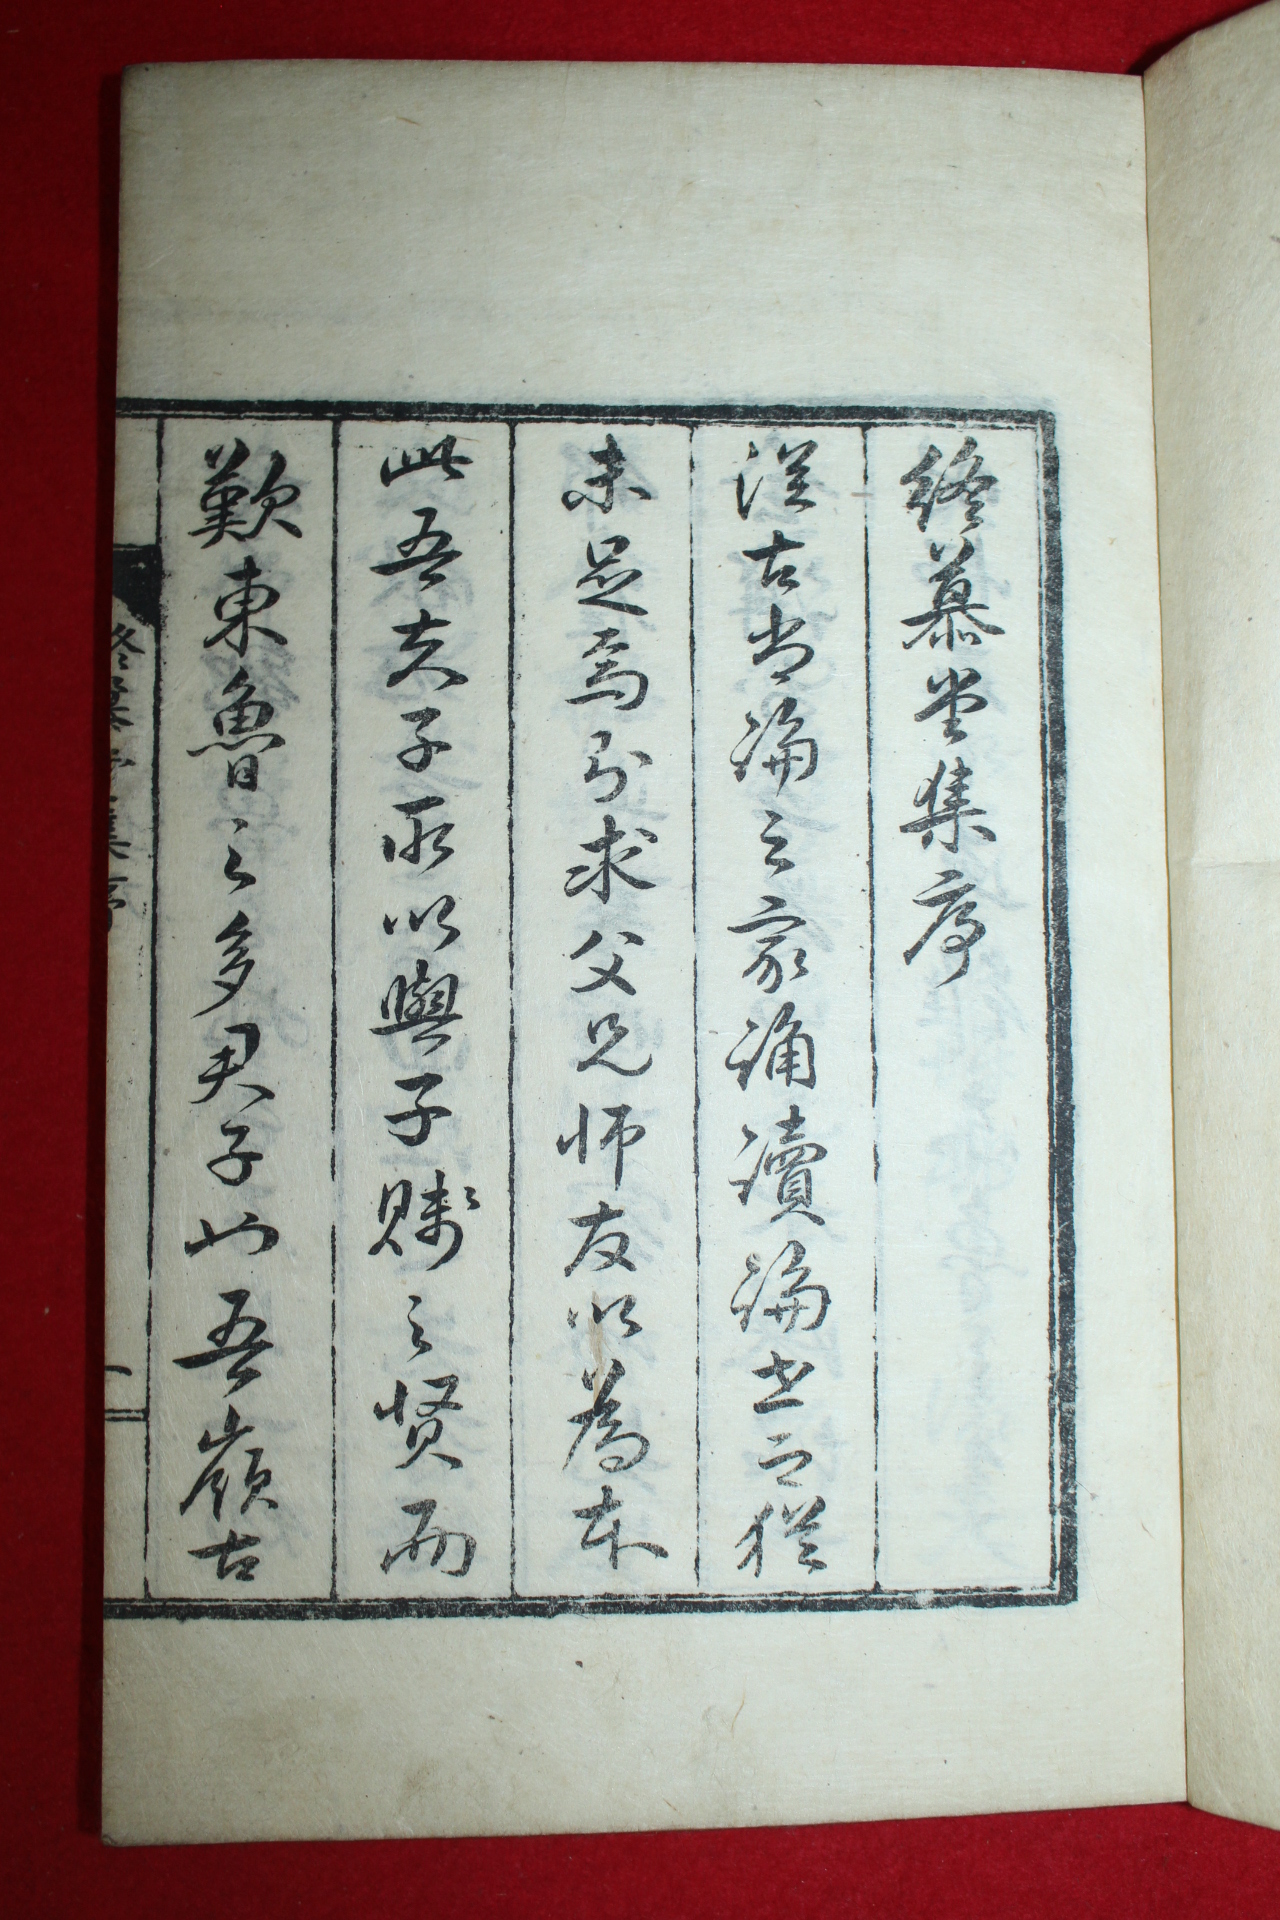 終慕堂集序
從古尚論之家誦讀論世之猶
未足焉則求父兄師友以爲本
此吾夫子所以與子賤之賢而
歎東魯之多君子也吾嶺古
終慕堂集序
一